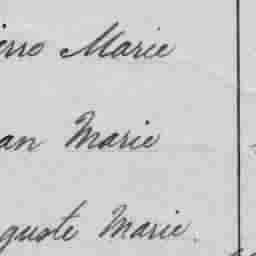 erre Marie
an Marie
guste Marie.